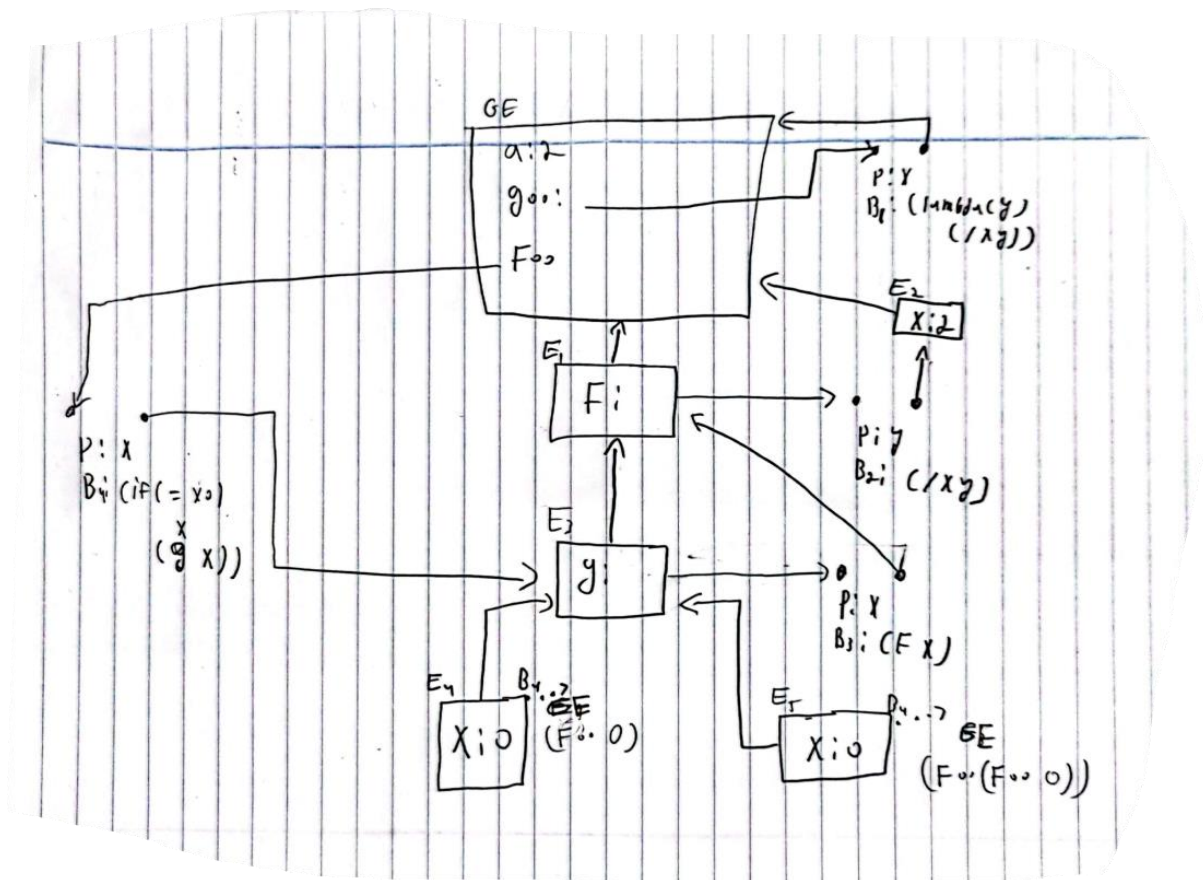 GE
a:2
goo:
Foo
P: X
B1: (lambda(y)
(/xy))
E2
X:2
E1
F:
P: y
B2: (/xy)
P: X
B4: (if (= x0)
x
(g x))
E3
g:
P: X
B3: (F X)
E4
X:0
B4..→
GE
(Foo 0)
E5
X:0
B4..→
GE
(Foo (Foo 0))